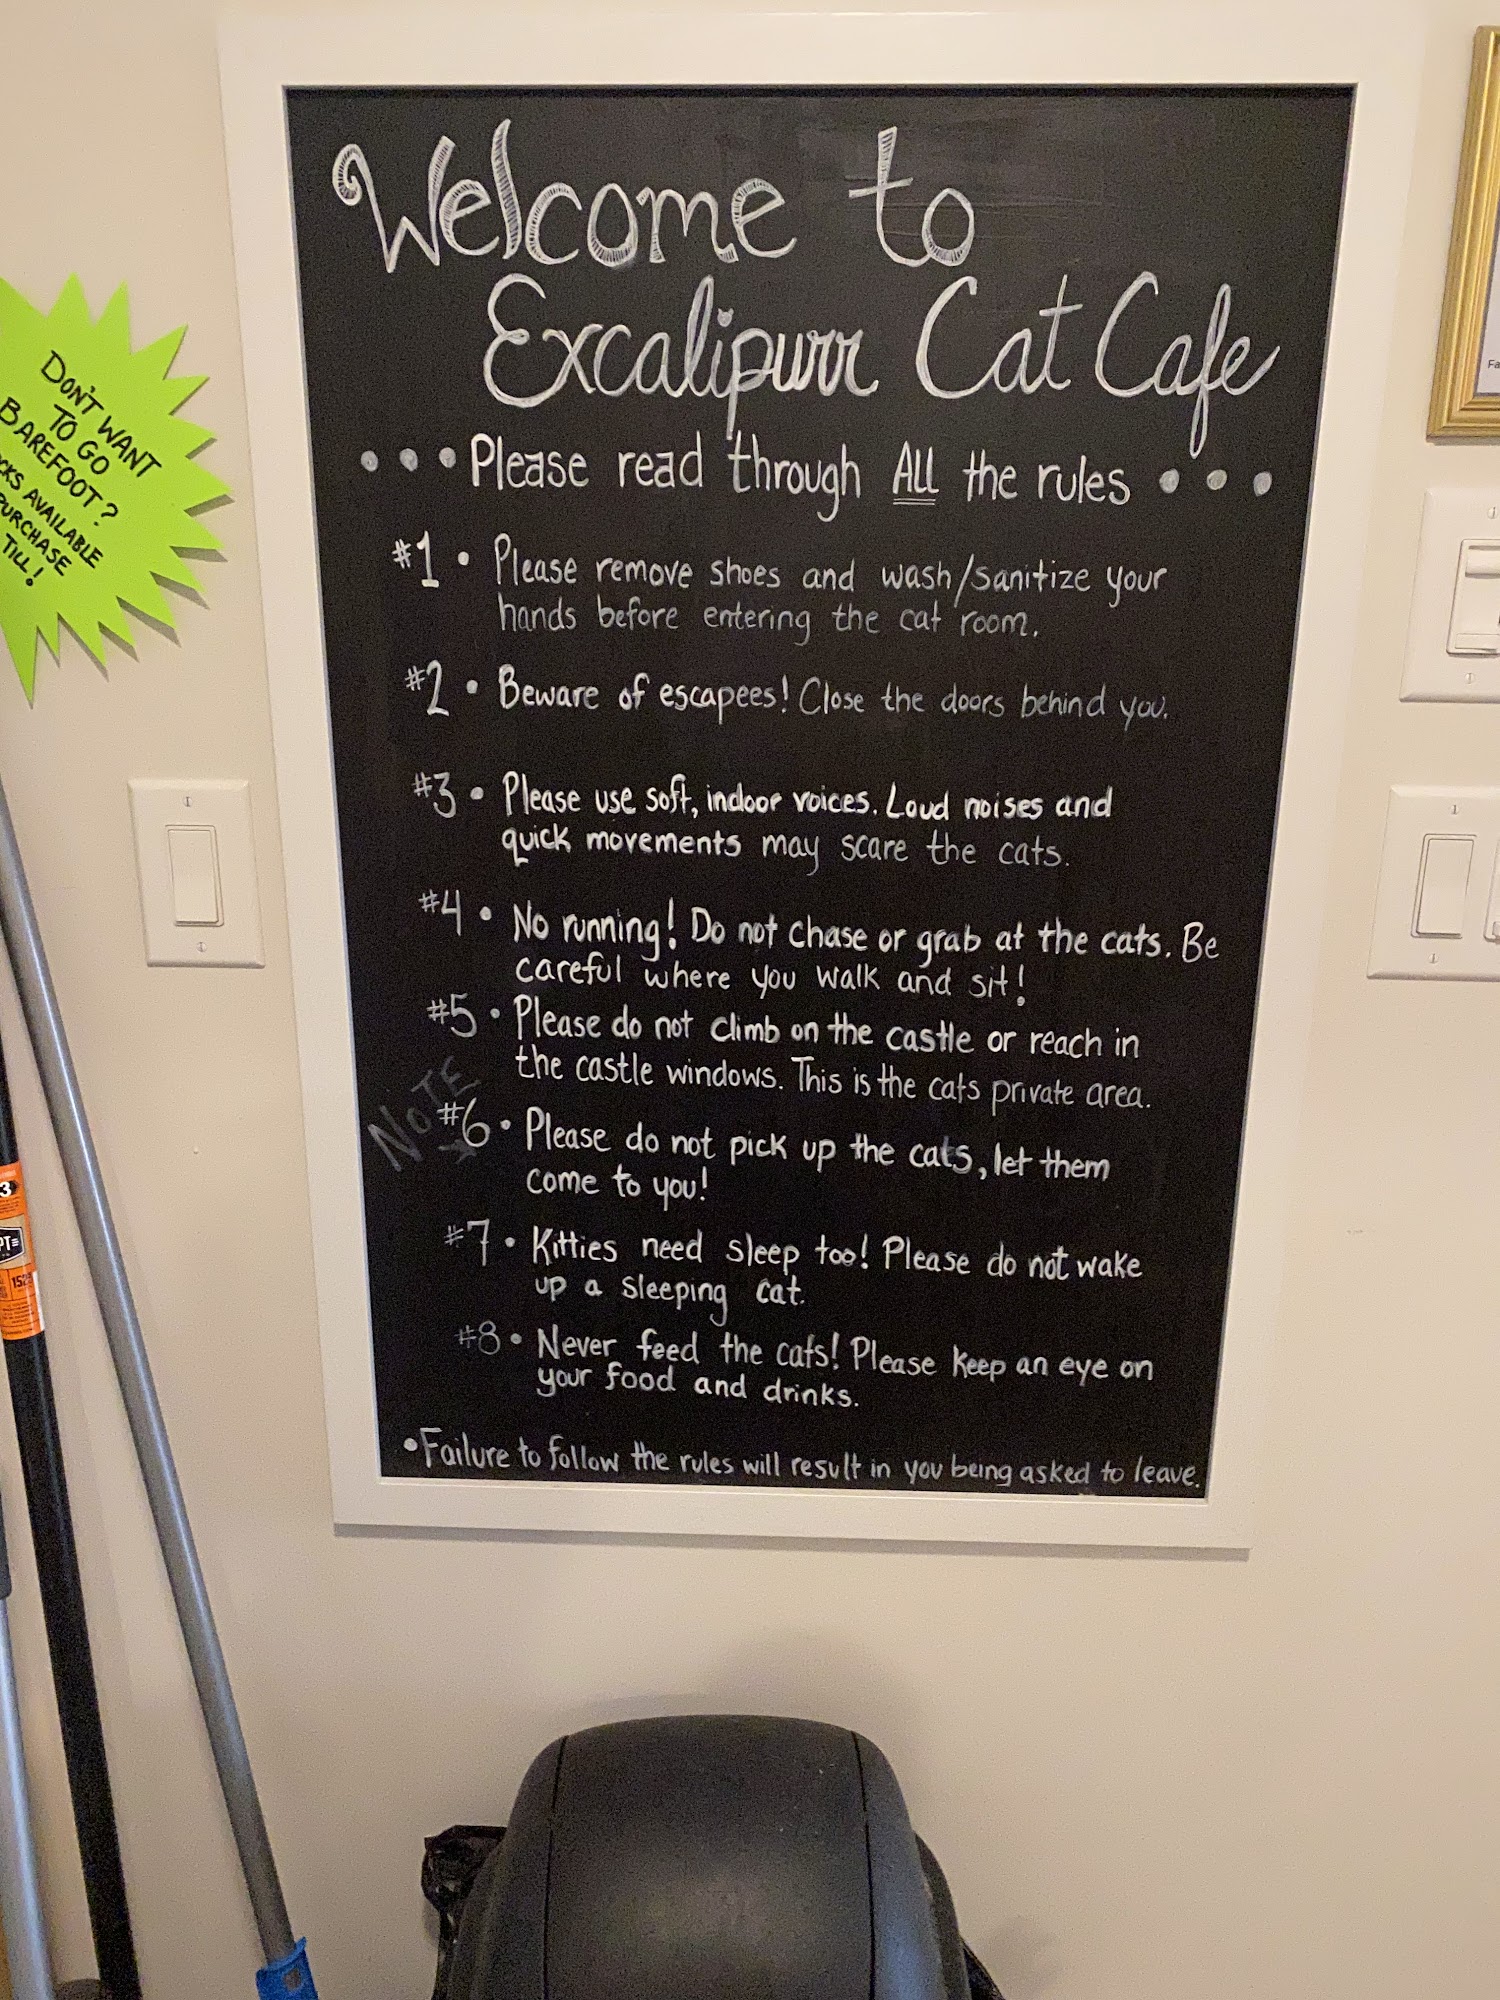 Welcome to
Excalipurr Cat Cafe
• • • Please read through ALL the rules • • •
#1 • Please remove shoes and wash/sanitize your
hands before entering the cat room.
#2 • Beware of escapees! Close the doors behind you.
#3 • Please use soft, indoor voices. Loud noises and
quick movements may scare the cats.
#4 • No running! Do not chase or grab at the cats. Be
careful where you walk and sit!
#5 • Please do not climb on the castle or reach in
the castle windows. This is the cats private area.
NOTE
#6 • Please do not pick up the cats, let them
come to you!
#7 • Kitties need sleep too! Please do not wake
up a sleeping cat.
#8 • Never feed the cats! Please keep an eye on
your food and drinks.
• Failure to follow the rules will result in you being asked to leave.
DON'T WANT
TO GO
BAREFOOT?
AVAILABLE
PURCHASE
TILL!
3
152
Fa